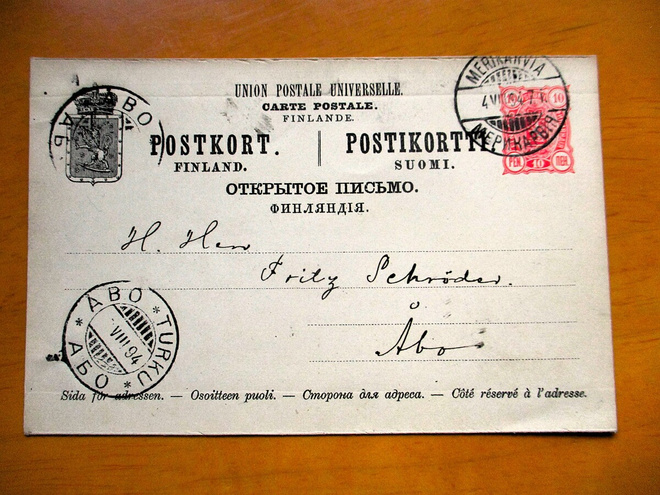 UNION POSTALE UNIVERSELLE.
CARTE POSTALE.
FINLANDE.
POSTKORT. | POSTIKORTTI.
FINLAND. SUOMI.
ОТКРЫТОЕ ПИСЬМО.
ФИНЛЯНДІЯ.
MERIKARVIA
4 VII 94
МЕРИКАРВІЯ
10 10
PEN. 10 ПЕН.
ABO
H. Herr
Fritz Schröder.
Åbo
ABO * TURKU * АБО *
VIII 94
Sida för adressen. — Osoitteen puoli. — Сторона для адреса. — Côté réservé à l'adresse.